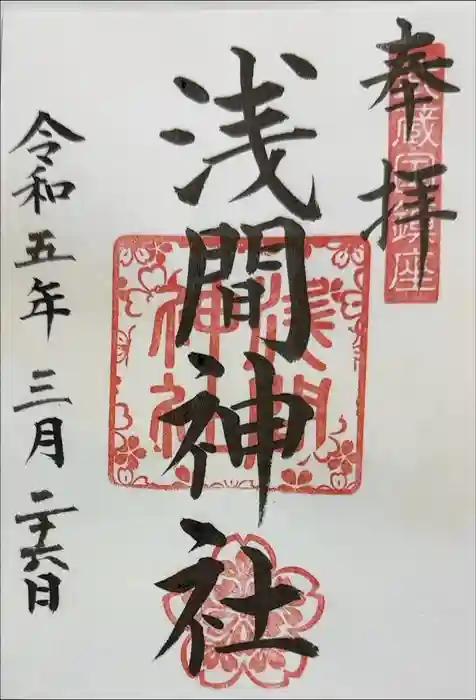 奉拝
武蔵国鎮座
浅間神社
浅間神社
令和五年三月二十六日